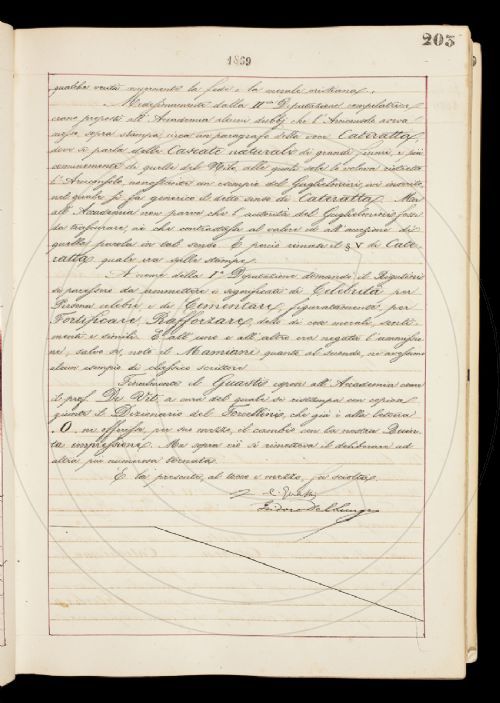 203
1869
qualche verità insegnante la fede e la morale cristiana.
Medesimamente dalla IIa Deputazione compilatrice
erano proposti all'Accademia alcuni dubbj che l'Arciconsolo aveva
sopra stampa circa un paragrafo della voce Cateratta,
dove si parla delle Cascate naturali di grandi fiumi, e più
comunemente di quelle del Nilo, alle quali sole lo voleva ristretto
l'Arciconsolo, nonostante un esempio del Guglielmini ivi inserito,
nel quale si fa generico il detto senso di Cateratta. Ma
all'Accademia non parve che l'autorità del Guglielmini fosse
da trascurare, nè che contrastasse al valore ed all'accezione di
quella parola in tal senso. E perciò rimase il § V di Cate
ratta quale era sulle stampe.
A nome della Ia Deputazione domandò il Rigutini
se paressero da ammettere i significati di Celebrità per
Persona celebre e di Cementare, figuratamente per
Fortificare, Rafforzare, detto di cose morali, senti
menti e simili. E all'uno e all'altro era negata l'ammissio
ne, salvo se, notò il Mamiani quanto al secondo, ne avessimo
alcun esempio di classico scrittore.
Finalmente il Guasti espose all'Accademia come
il prof. De Vit, a cura del quale si ristampa con copiose
giunte il Dizionario del Forcellini, che già è alla lettera
O. ne offrisse, per suo mezzo, il cambio con la nostra Quin
ta impressione. Ma sopra ciò si rimetteva il deliberare ad
altra più numerosa tornata.
E la presente, al tocco e mezzo, fu sciolta.
C. Guasti
Isidoro Del Lungo